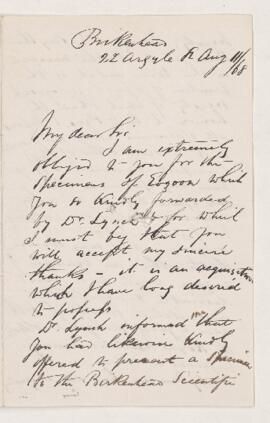 Birkenhead
22 Argyle St Aug 11/68
My dear Sir
I am extremely
obliged to you for the
specimens of Eozoon which
you so kindly forwarded
by Dr. Lynch & for which
I must beg that you
will accept my sincere
thanks - it is an acquisition
which I have long desired
to possess
Dr. Lynch informed me that
you had likewise kindly
offered to present a specimen
to the Birkenhead Scientific